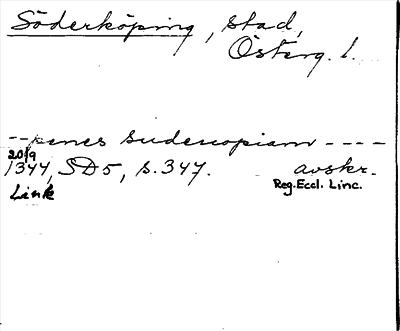 Söderköping, stad,
Österg. l.
--penes Sudercopiam----
20/9
1344, SD5, s. 347. avskr.
Link Reg. Eccl. Linc.